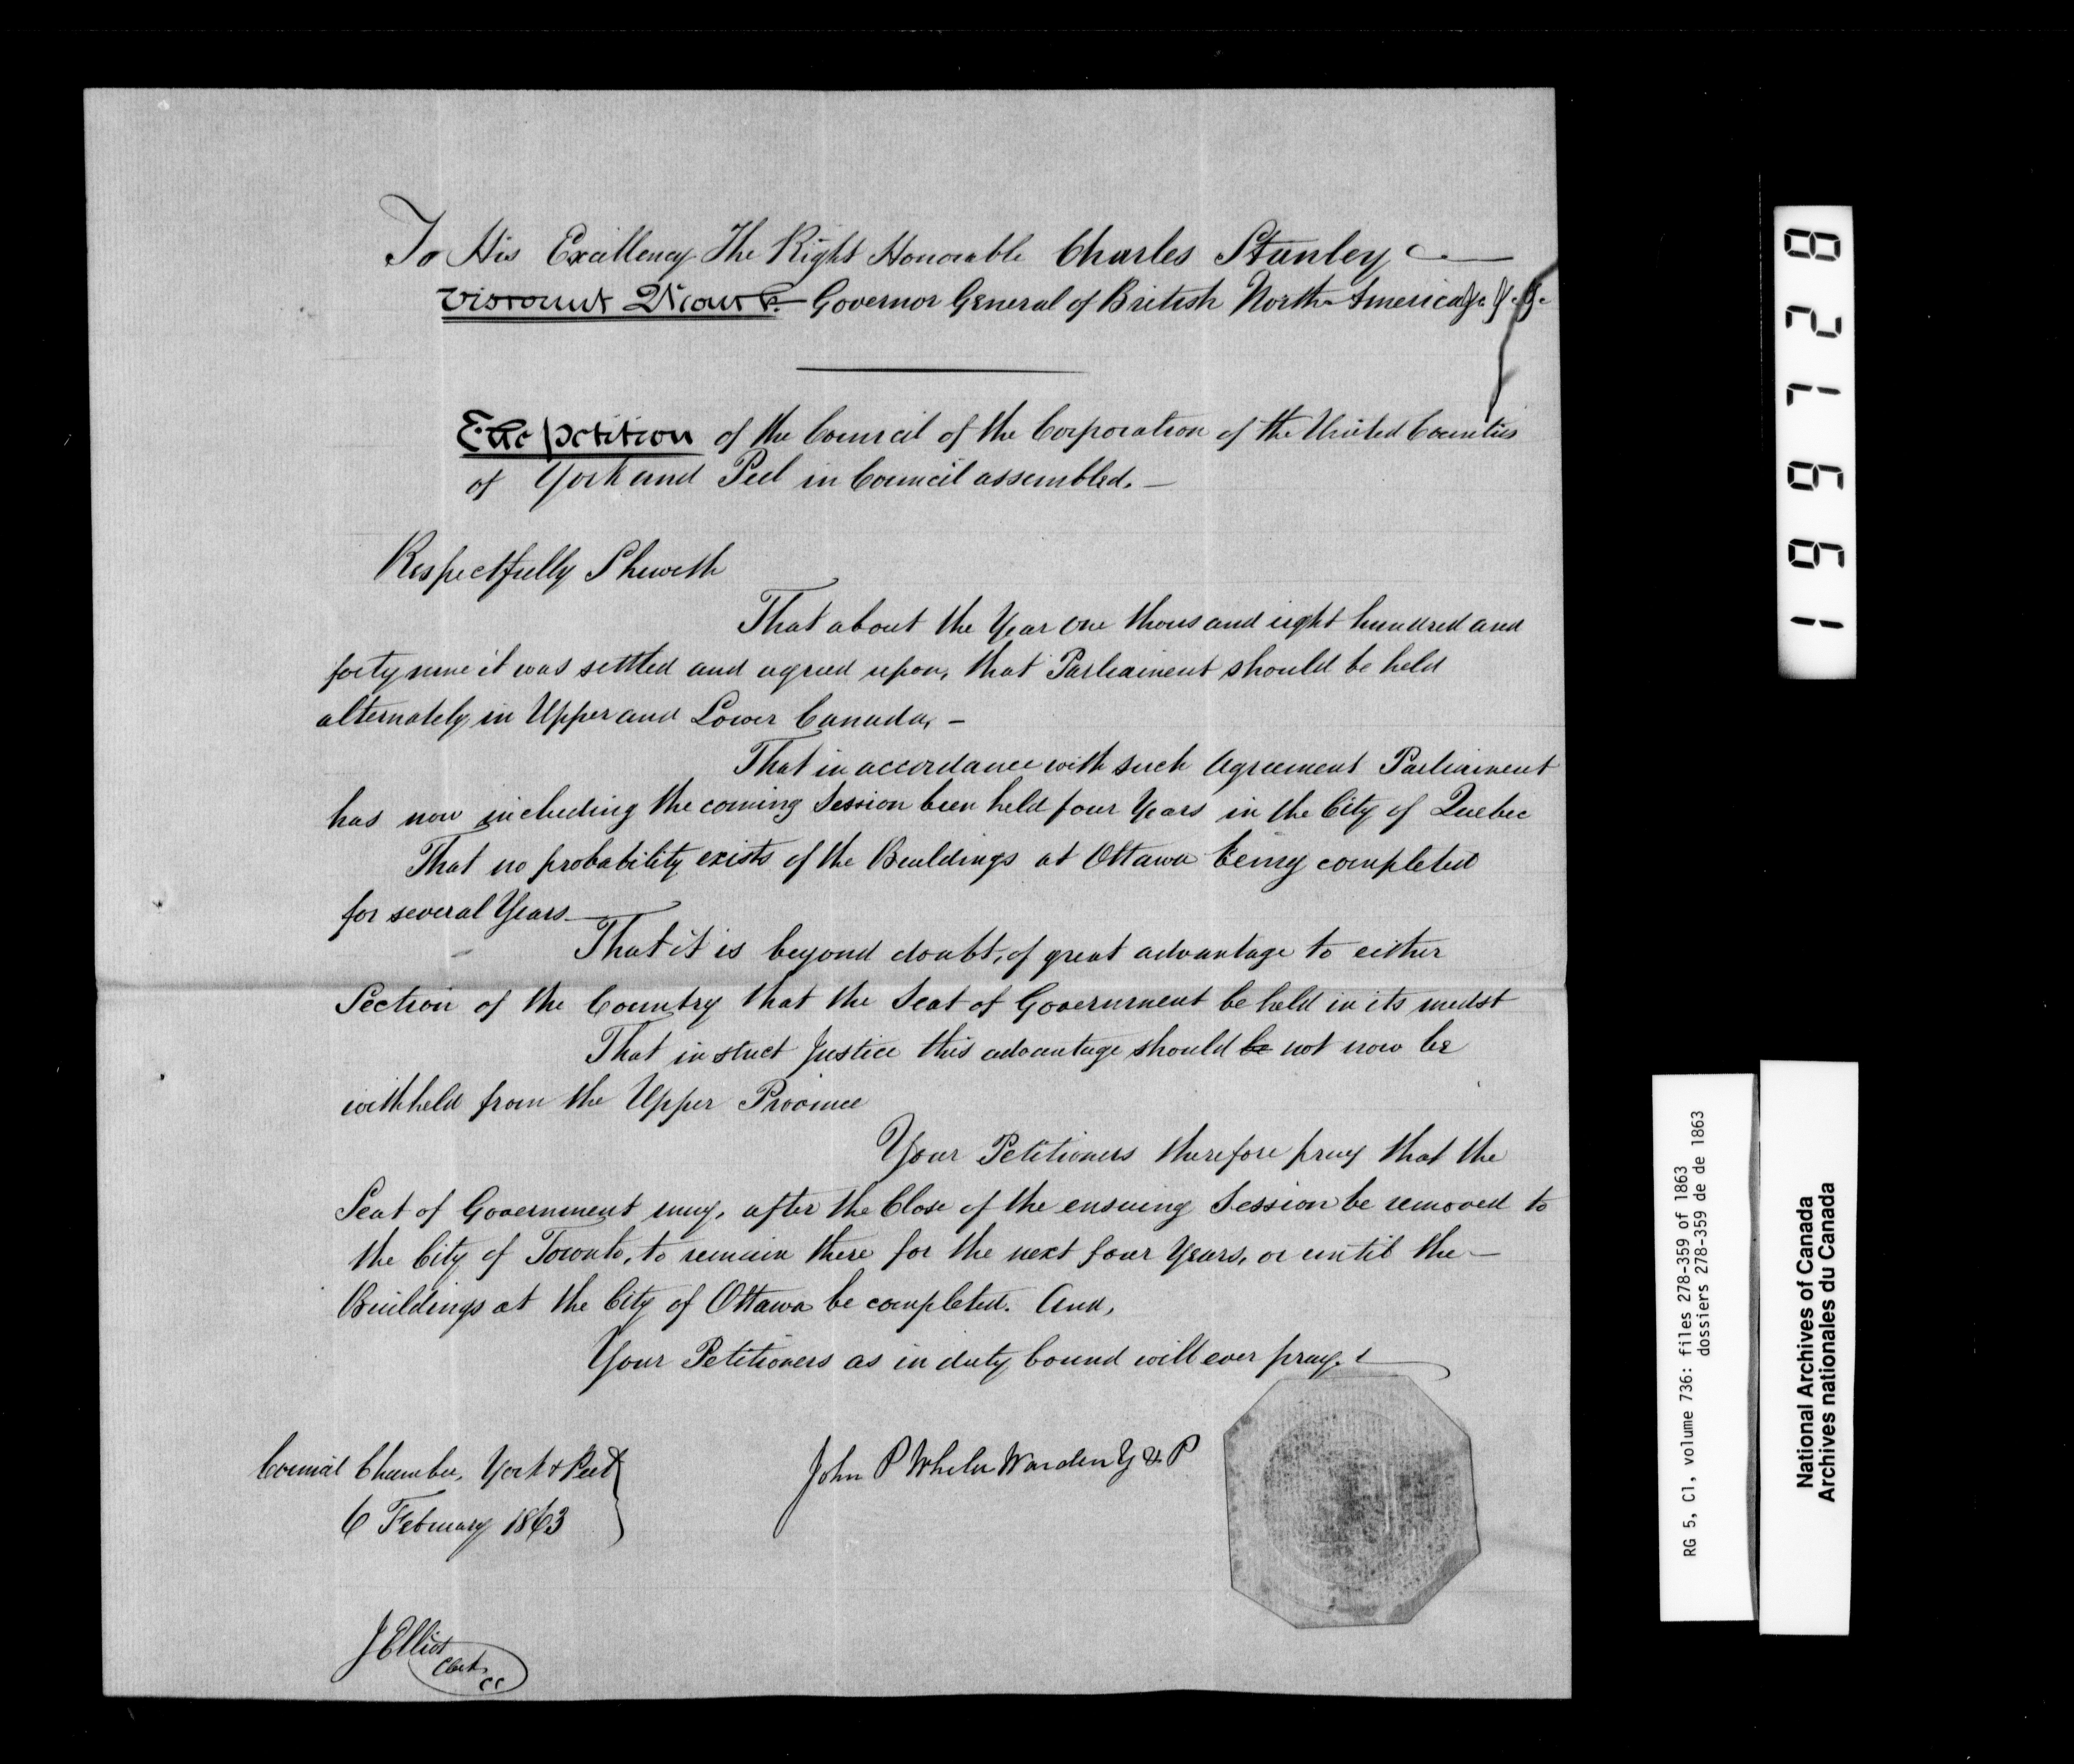 To His Excellency The Right Honorable Charles Stanley
Viscount Monck Governor General of British North America &c &c &c
The petition of the Council of the Corporation of the United Counties
of York and Peel in Council assembled. —
Respectfully Sheweth
That about the Year one thousand eight hundred and
forty nine it was settled and agreed upon, that Parliament should be held
alternately in Upper and Lower Canada, —
That in accordance with such Agreement Parliament
has now including the coming Session been held four Years in the City of Quebec
That no probability exists of the Buildings at Ottawa being completed
for several Years —
That it is beyond doubt, of great advantage to either
Section of the Country that the Seat of Government be held in its midst
That in strict Justice this advantage should be not now be
withheld from the Upper Province
Your Petitioners therefore pray that the
Seat of Government may, after the Close of the ensuing Session be removed to
the City of Toronto, to remain there for the next four Years, or until the —
Buildings at the City of Ottawa be completed. And,
Your Petitioners as in duty bound will ever pray.
Council Chamber, York & Peel
6 February 1863
John P Wheler Warden Y & P
J Elliot
Clerk
CC
1991728
RG 5, C1, volume 736: files 278-359 of 1863
dossiers 278-359 de de 1863
National Archives of Canada
Archives nationales du Canada